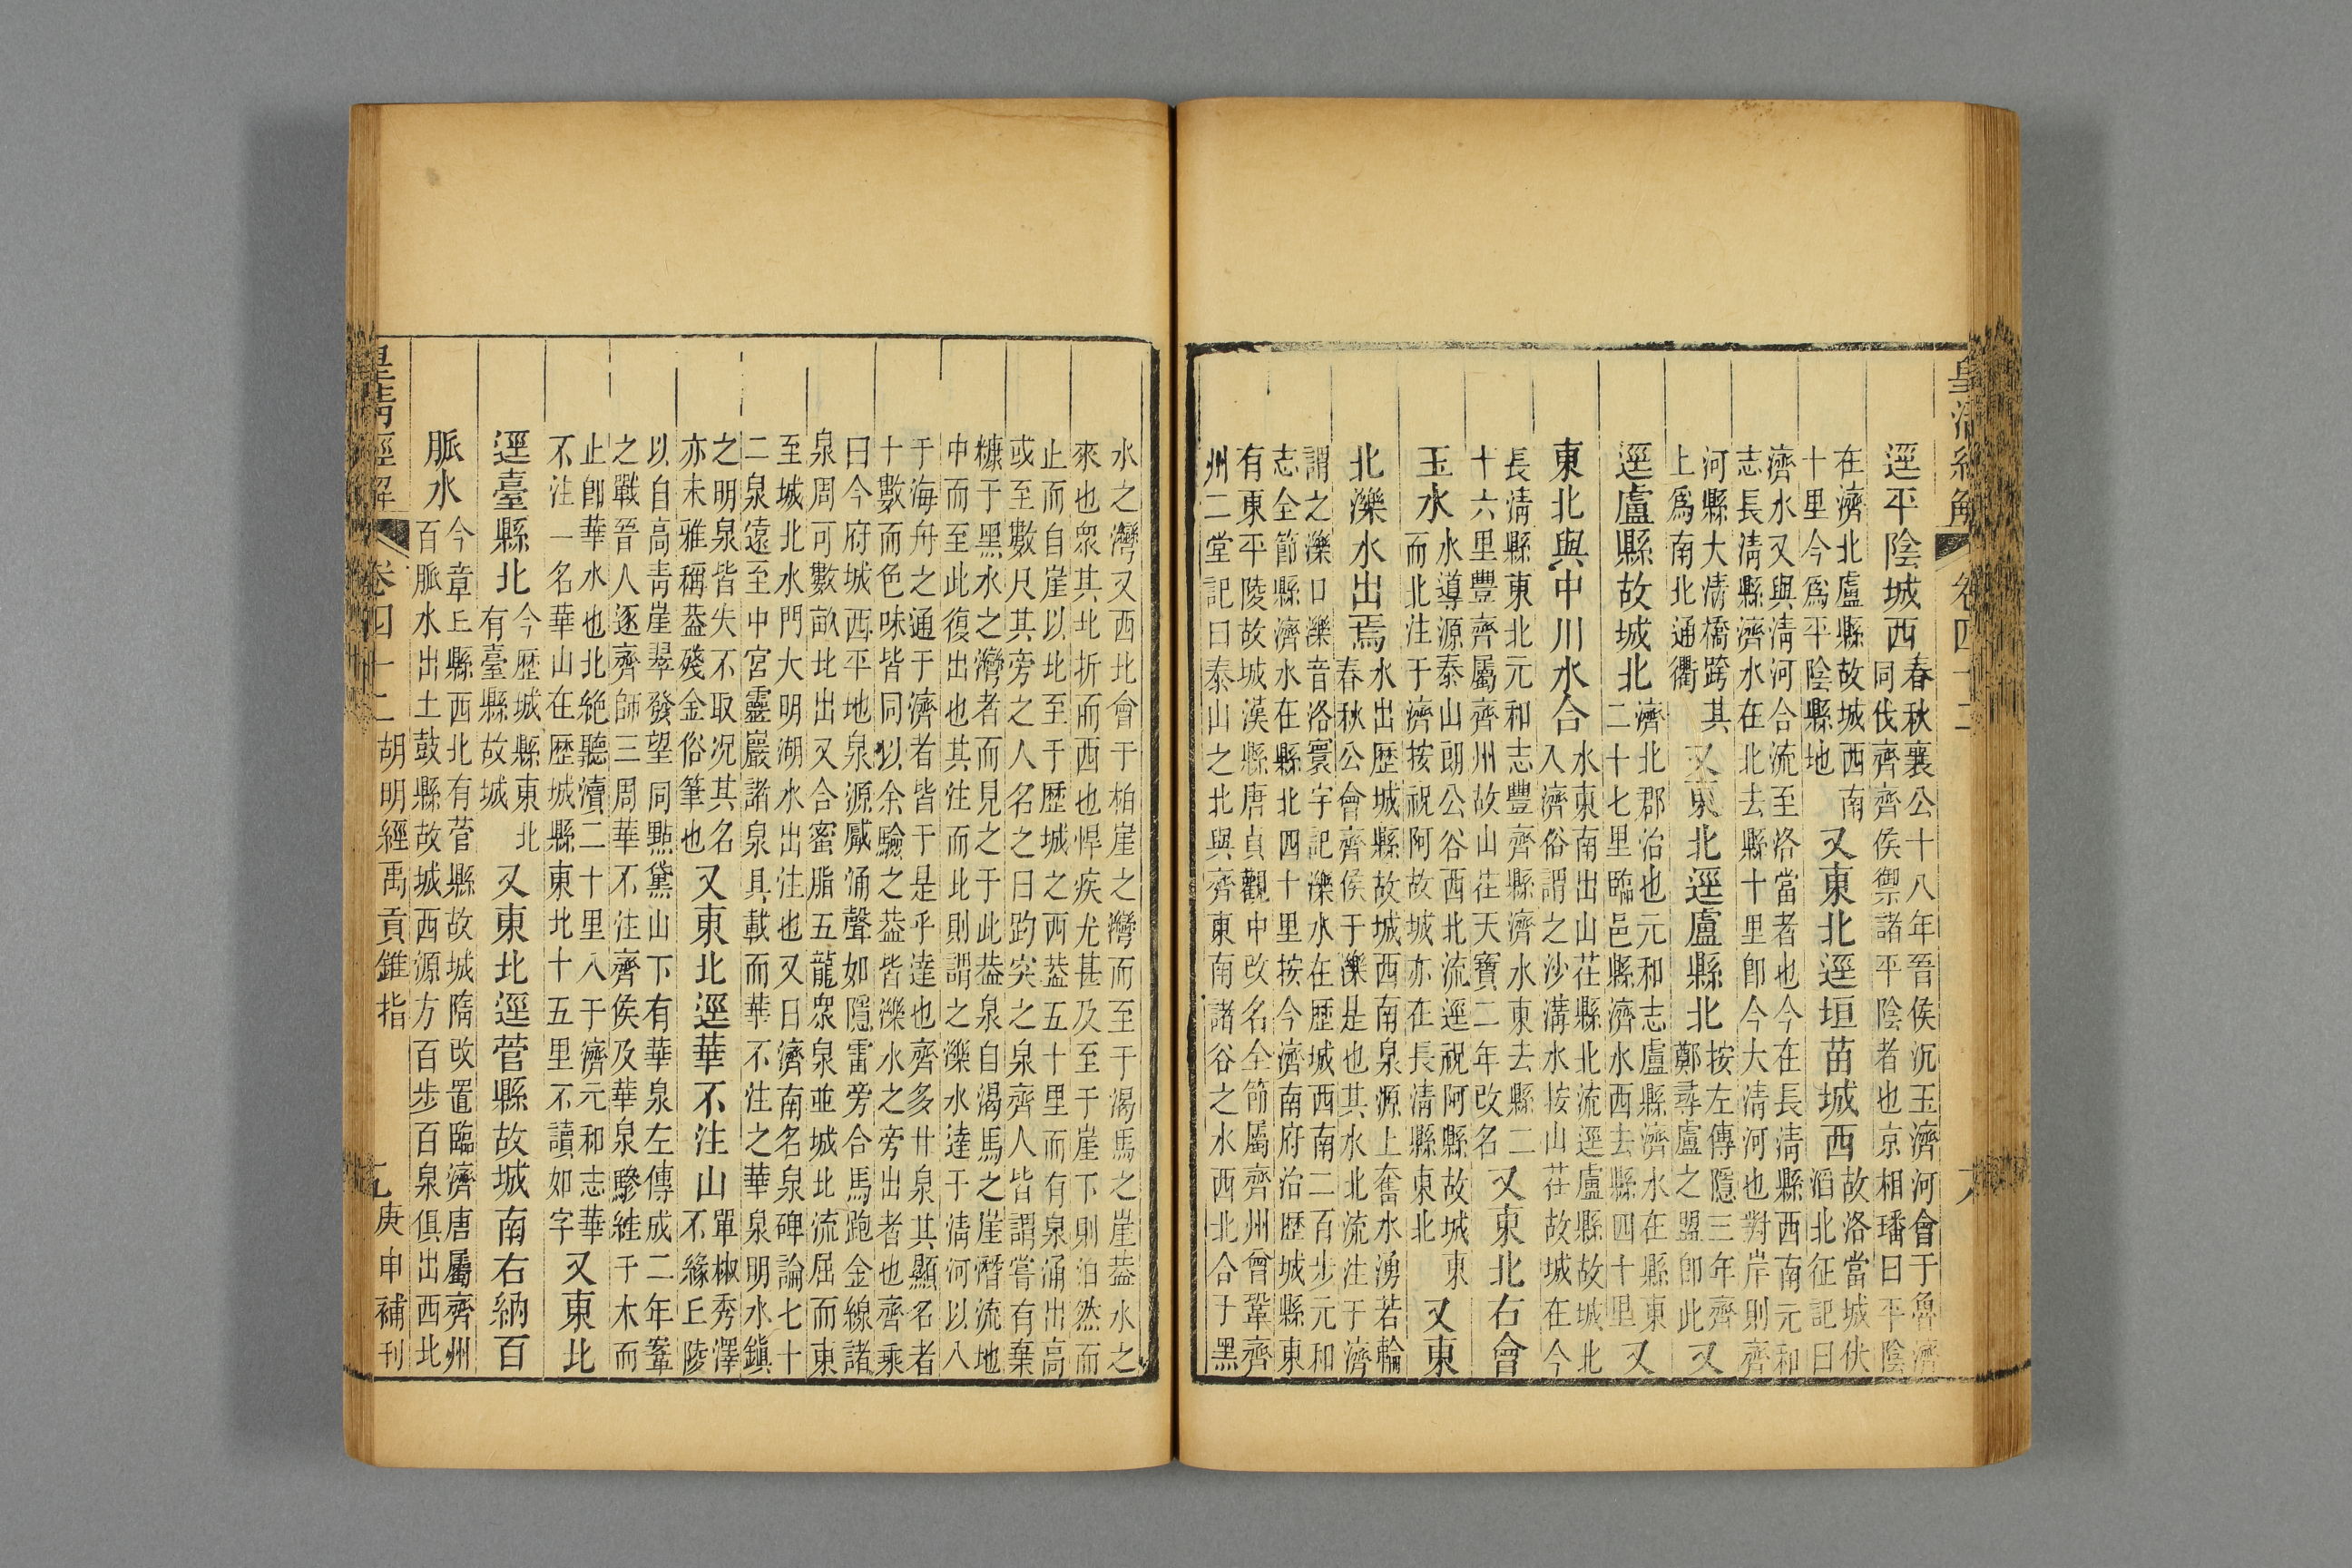 皇清經解 卷四十二
逕平陰城西 春秋襄公十八年晉侯沉玉濟河會于魯濟
同伐齊齊侯禦諸平陰者也京相璠曰平陰
在濟北盧縣故城西南
十里今爲平陰縣地 又東北逕垣苗城西 故洛當城伏
滔北征記曰
濟水又與淸河合流至洛當者也今在長淸縣西南元和
志長淸縣濟水在北去縣十里卽今大淸河也對岸則齊
河縣大淸橋跨其
上爲南北通衢 又東北逕盧縣北 按左傳隱三年齊
鄭尋盧之盟卽此 又
逕盧縣故城北 濟北郡治也元和志盧縣濟水在縣東
二十七里臨邑縣濟水西去縣四十里 又
東北與中川水合 水東南出山茌縣北流逕盧縣故城北
入濟俗謂之沙溝水按山茌故城在今
長淸縣東北元和志豐齊縣濟水東去縣二
十六里豐齊屬齊州故山茌天寶二年改名 又東北右會
玉水 水導源泰山朗公谷西北流逕祝阿縣故城東
而北注于濟按祝阿故城亦在長淸縣東北 又東
北濼水出焉 水出歷城縣故城西南泉源上奮水湧若輪
春秋公會齊侯于濼是也其水北流注于濟
謂之濼口濼音洛寰宇記濼水在歷城西南二百步元和
志全節縣濟水在縣北四十里按今濟南府治歷城縣東
有東平陵故城漢縣唐貞觀中改名全節屬齊州曾鞏齊
州二堂記曰泰山之北與齊東南諸谷之水西北合于黑
水之灣又西北會于柏崖之灣而至于渴馬之崖葢水之
來也衆其北折而西也悍疾尤甚及至于崖下則泊然而
止而自崖以北至于歷城之西葢五十里而有泉涌出高
或至數尺其旁之人名之曰趵突之泉齊人皆謂嘗有棄
糠于黑水之灣者而見之于此葢泉自渴馬之崖潛流地
中而至此復出也其注而北則謂之濼水達于淸河以八
于海舟之通于濟者皆于是乎達也齊多甘泉其顯名者
十數而色味皆同以余驗之葢皆濼水之旁出者也齊乘
曰今府城西平地泉源觱涌聲如隱雷旁合馬跑金線諸
泉周可數畝北出又合蜜脂五龍衆泉並城北流屈而東
至城北水門大明湖水出注也又曰濟南名泉碑論七十
二泉遠至中宮靈巖諸泉具載而華不注之華泉明水鎭
之明泉皆失不取况其名
亦未雅稱葢殘金俗筆也 又東北逕華不注山 單椒秀澤
不緣丘陵
以自高靑崖翠發望同點黛山下有華泉左傳成二年鞌
之戰晉人逐齊師三周華不注齊侯及華泉驂絓于木而
止卽華水也北絶聽瀆二十里入于濟元和志華
不注一名華山在歷城縣東北十五里不讀如字 又東北
逕臺縣北 今歷城縣東北
有臺縣故城 又東北逕菅縣故城南右納百
脈水 今章丘縣西北有菅縣故城隋改置臨濟唐屬齊州
百脈水出土鼓縣故城西源方百步百泉俱出西北
皇淸經解 卷四十二 胡明經禹貢錐指 庚申補刊